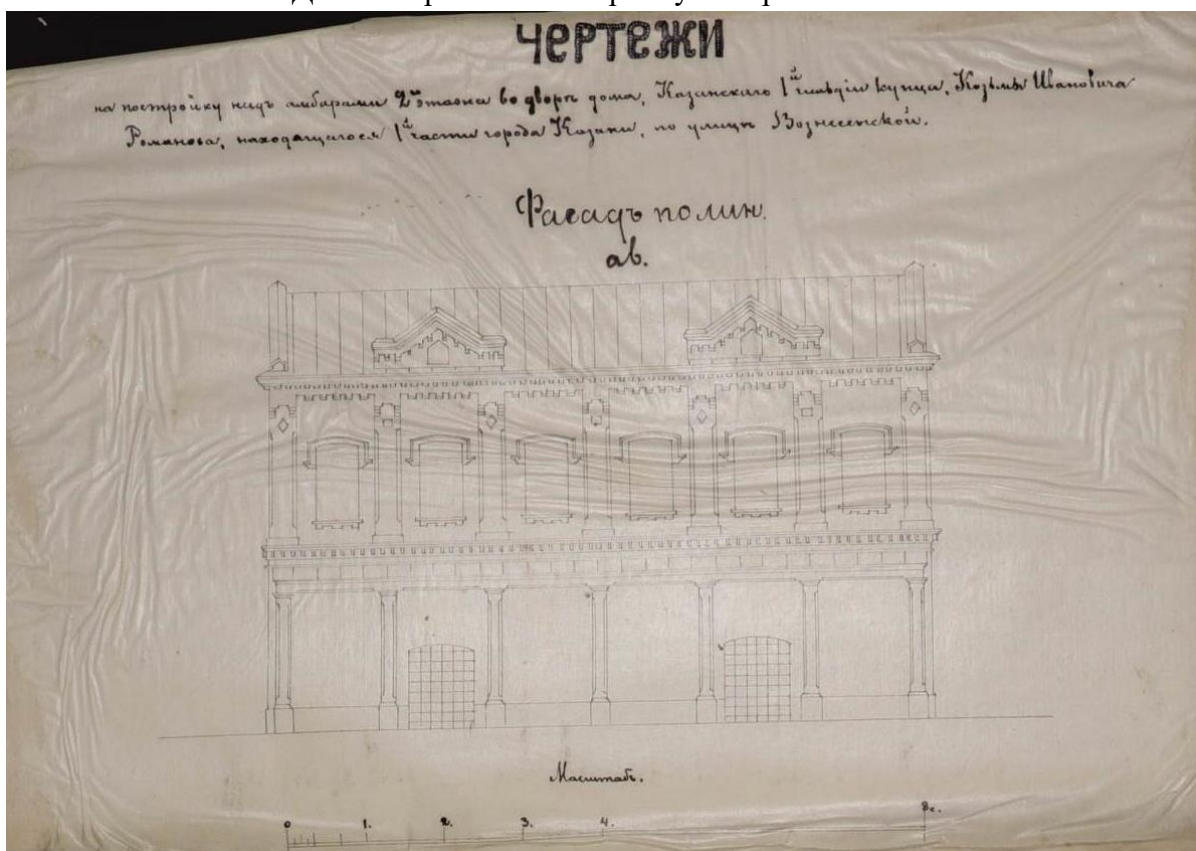 чертежи
на постройку надъ амбарами 2го этажа во дворѣ дома, Казанскаго 1й гильдіи купца, Козьмы Ивановича
Романова, находящагося 1й части города Казани, по улицѣ Вознесенской.
Фасадъ по лин.
ав.
Масштабъ.
0 1. 2. 3. 4. 8с.